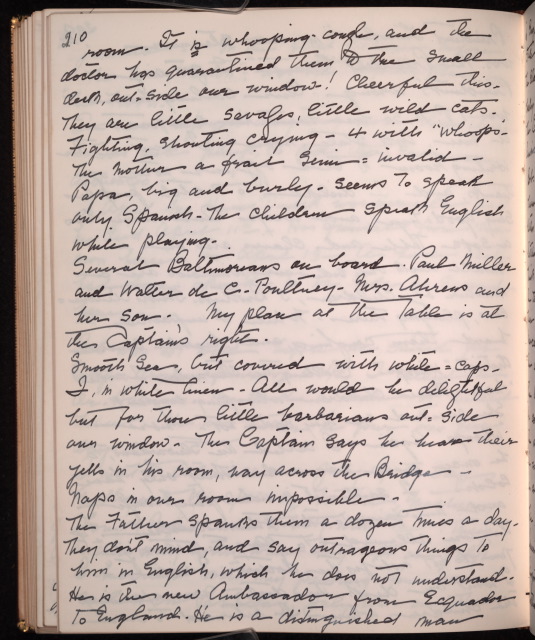 210
room. It is whooping-cough, and the
doctor has quarantined them to the small
deck, out-side our window! Cheerful this.
They are little savages, little wild cats.
Fighting, shouting crying - 4 with "whoops"-
The mother a frail semi=invalid -
Papa, big and burly - seems to speak
only Spanish - The children speak English
while playing.
Several Baltimoreans on board. Paul Miller
and Walter de C. Poultney - Mrs. Ahrens and
her son. My place at the Table is at
the Captain's right.
Smooth Sea, but covered with white=caps.
I, in white linen - All would be delightful
but for those little barbarians out=side
our window. The Captain says he hears their
yells in his room, way across the Bridge -
Naps in our room impossible -
The Father spanks them a dozen times a day.
They don't mind, and say outrageous things to
him in English, which he does not understand.
He is the new Ambassador from Ecquador
to England. He is a distinguished man